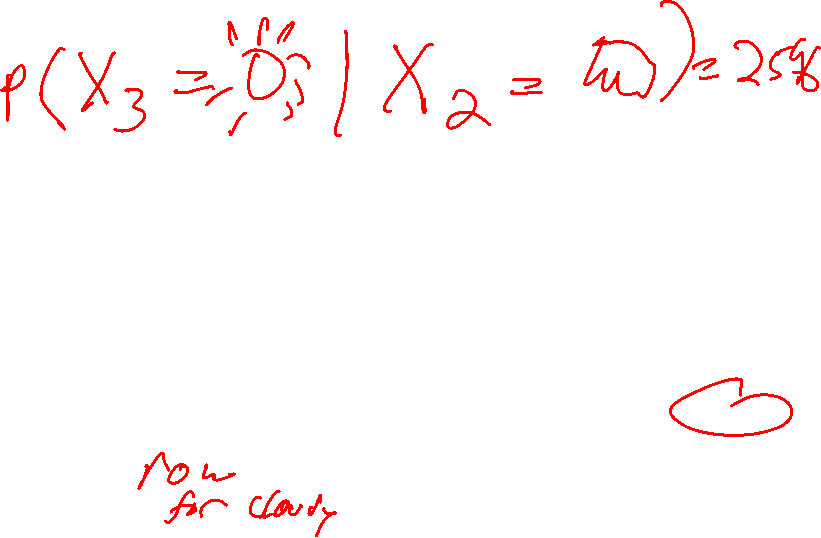 P(X₃ = ☀ | X₂ = ☁) = 25%
row
for cloudy